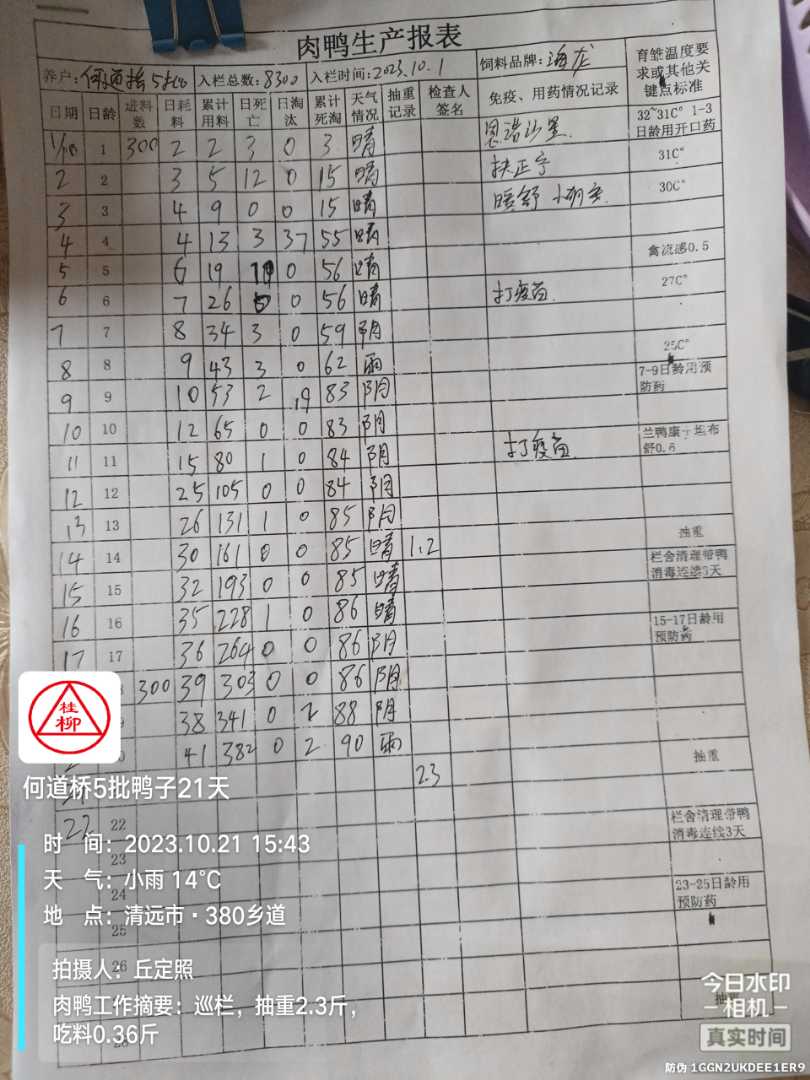 肉鸭生产报表
养户: 何道桥5批 入栏总数: 8300 入栏时间: 2023.10.1 饲料品牌: 海龙 育雏温度要求或其他关键点标准
日期 日龄 进料数 日耗料 累计用料 日死亡 日淘汰 累计死淘 天气情况 抽重记录 检查人签名 免疫、用药情况记录
1/10 1 300 2 2 3 0 3 晴 32~31C° 1-3日龄用开口药
2 2 3 5 12 0 15 晴 扶正宁 31C°
3 3 4 9 0 0 15 晴 30C°
4 4 4 13 3 37 55 晴 禽流感0.5
5 5 6 19 1 0 56 晴
6 6 7 26 0 0 56 晴 打疫苗 27C°
7 7 8 34 3 0 59 阴
8 8 9 43 3 0 62 雨 25C°
9 9 10 53 2 19 83 阴 7-9日龄用预防药
10 10 12 65 0 0 83 阴
11 11 15 80 1 0 84 阴 打疫苗 兰鸭康+坦布舒0.6
12 12 25 105 0 0 84 阴
13 13 26 131 1 0 85 阴
14 14 30 161 0 0 85 晴 1.2 抽重
15 15 32 193 0 0 85 晴 栏舍清理带鸭消毒连续3天
16 16 35 228 1 0 86 晴
17 17 36 264 0 0 86 阴 15-17日龄用预防药
300 39 303 0 0 86 阴
38 341 0 2 88 阴
41 382 0 2 90 雨
2.3 抽重
22 22
栏舍清理带鸭消毒连续3天
23
24 23-25日龄用预防药
25
26
桂柳
何道桥5批鸭子21天
时 间: 2023.10.21 15:43
天 气: 小雨 14℃
地 点: 清远市·380乡道
拍摄人: 丘定照
肉鸭工作摘要: 巡栏，抽重2.3斤，
吃料0.36斤
今日水印
相机
真实时间
防伪 1GGN2UKDEE1ER9